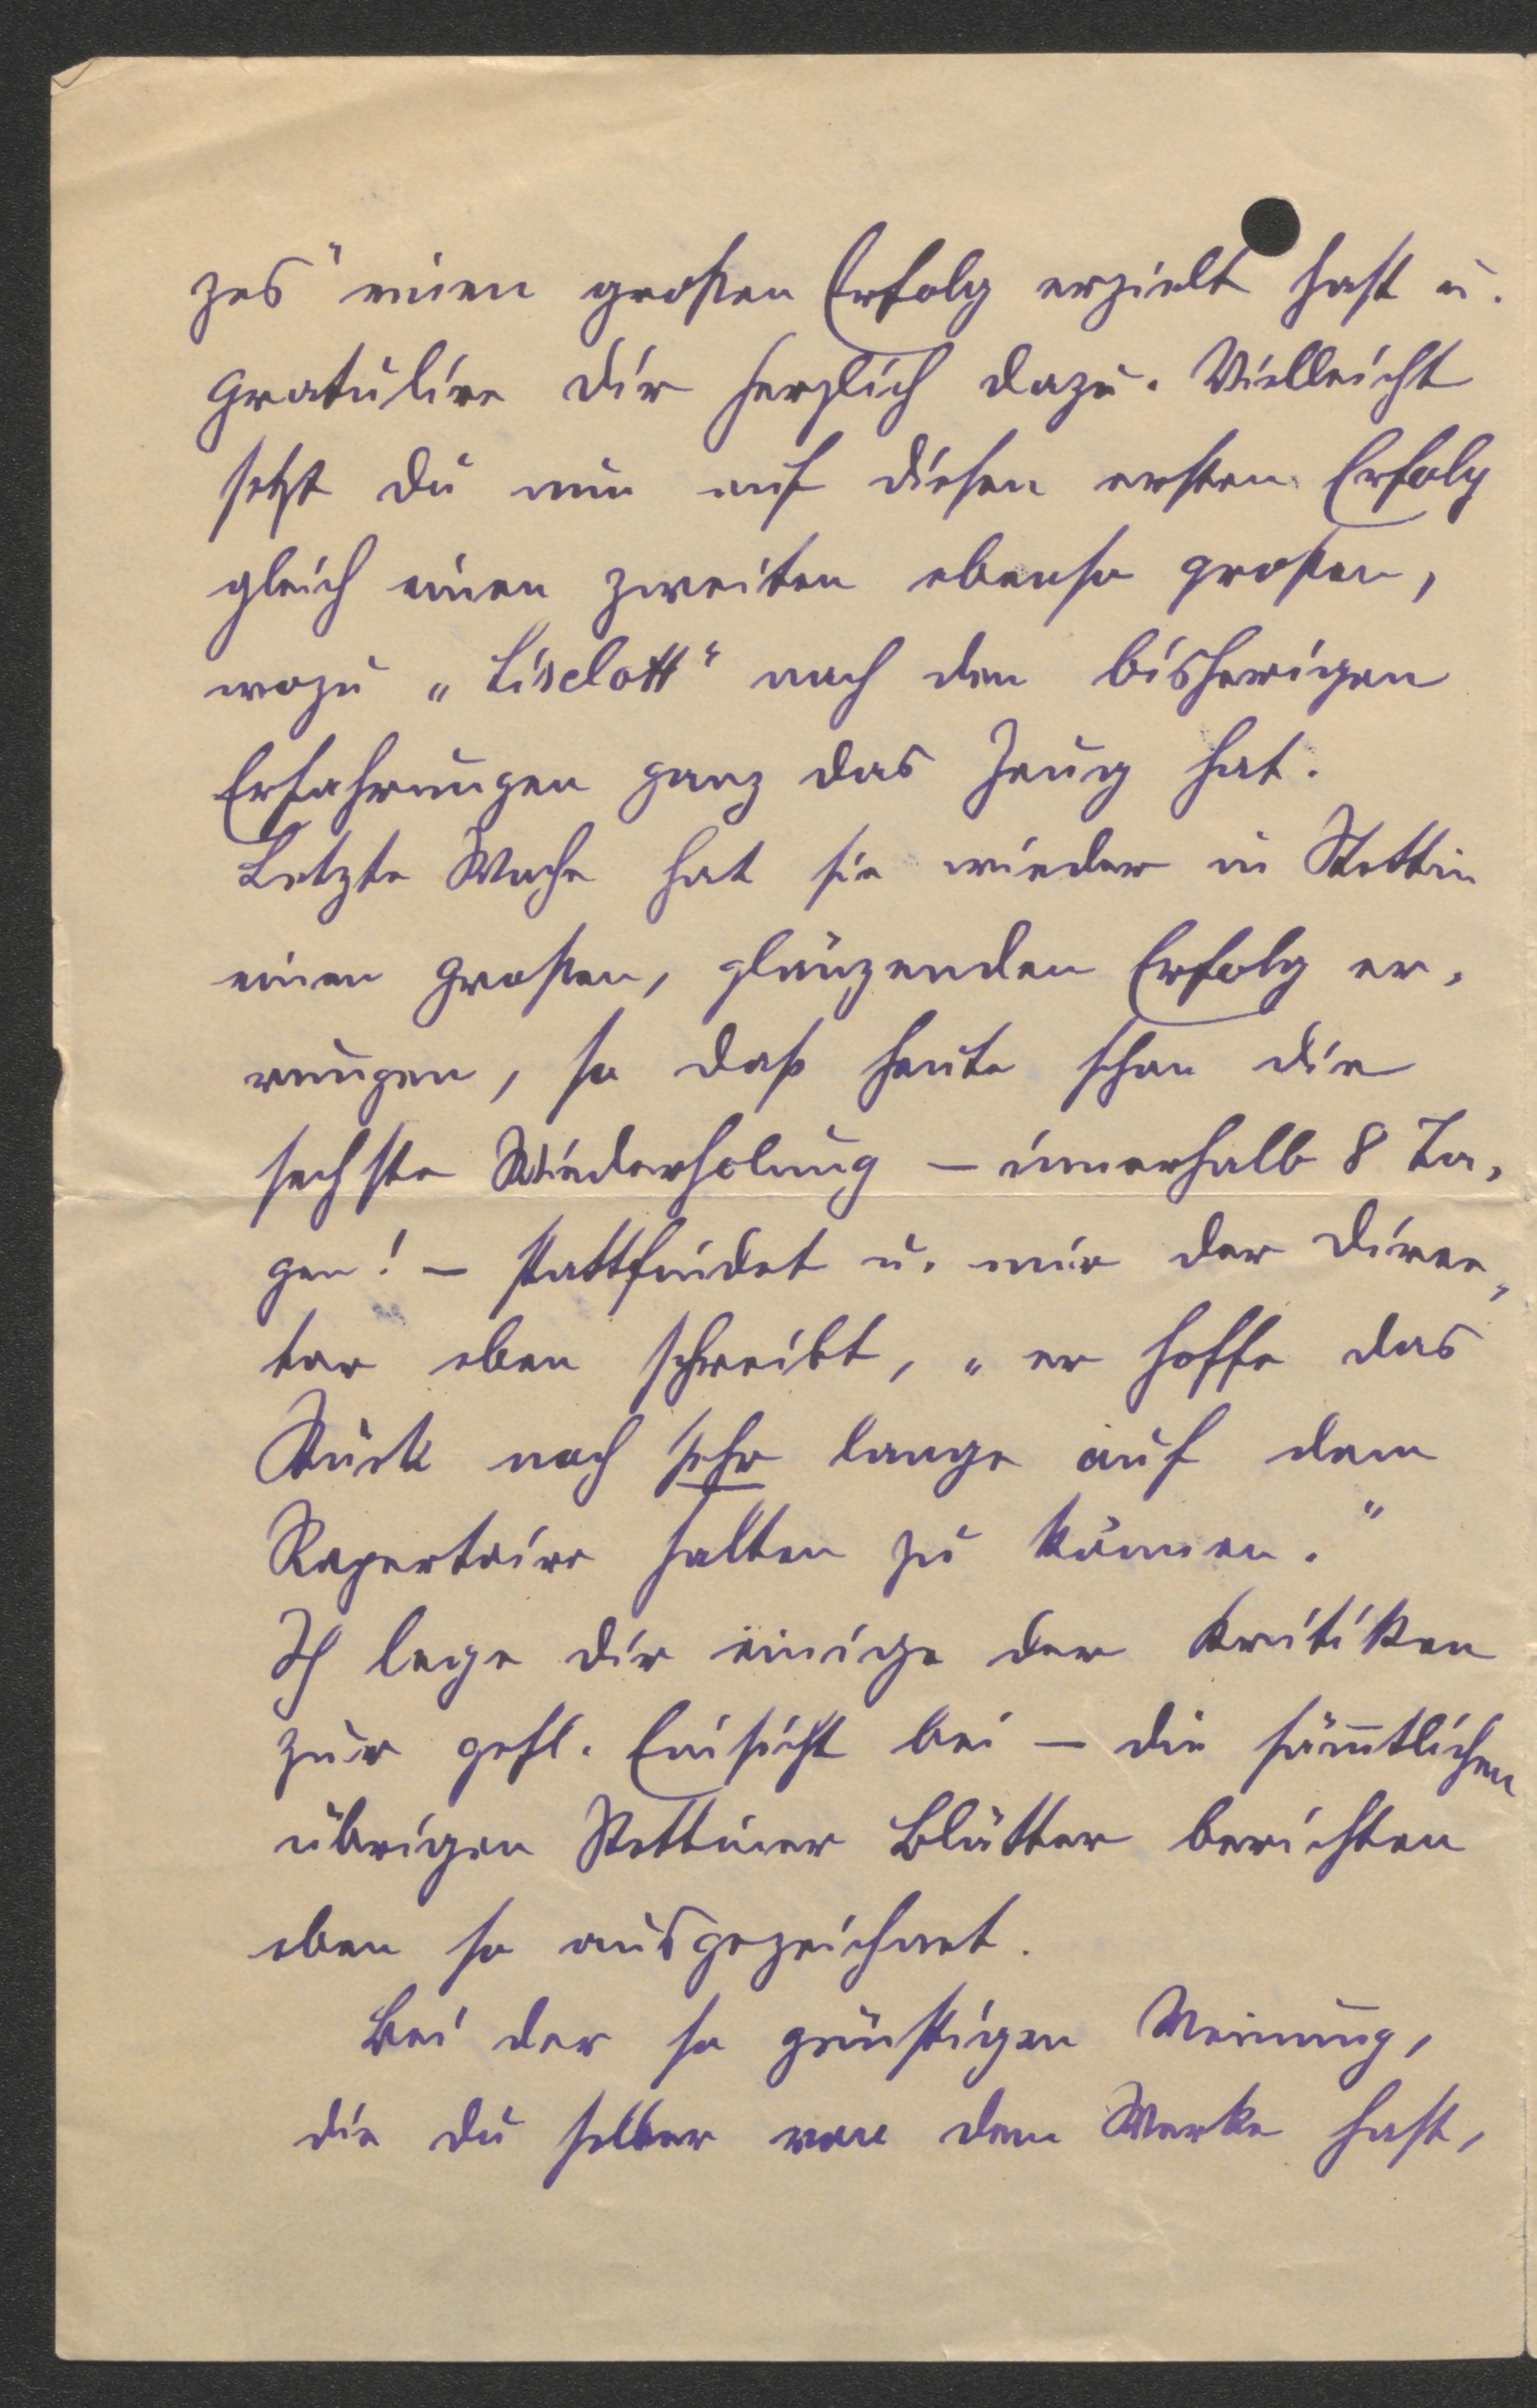 zes" einen großen Erfolg erzielt hast u.
gratulire dir herzlich dazu. Vielleicht
setzt du nun auf diesen ersten Erfolg
gleich einen zweiten ebenso großen,
wozu „Liselott“ nach den bisherigen
Erfahrungen ganz das Zeug hat.
Letzte Woche hat sie wieder in Stettin
einen großen, glänzenden Erfolg er-
rungen, so daß heute schon die
sechste Wiederholung – innerhalb 8 Ta-
gen! – stattfindet u. mir der Direc-
tor eben schreibt, „er hoffe das
Stück noch sehr lange auf dem
Repertoire halten zu können.“
Ich lege dir einige der Kritiken
zur gefl. Einsicht bei – die säm̄tlichen
übrigen Stettiner Blätter berichten
eben so ausgezeichnet.
Bei der so günstigen Meinung,
die du selber von dem Werke hast,